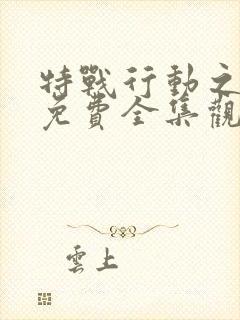 特戰行動之
免費全集觀
雲上